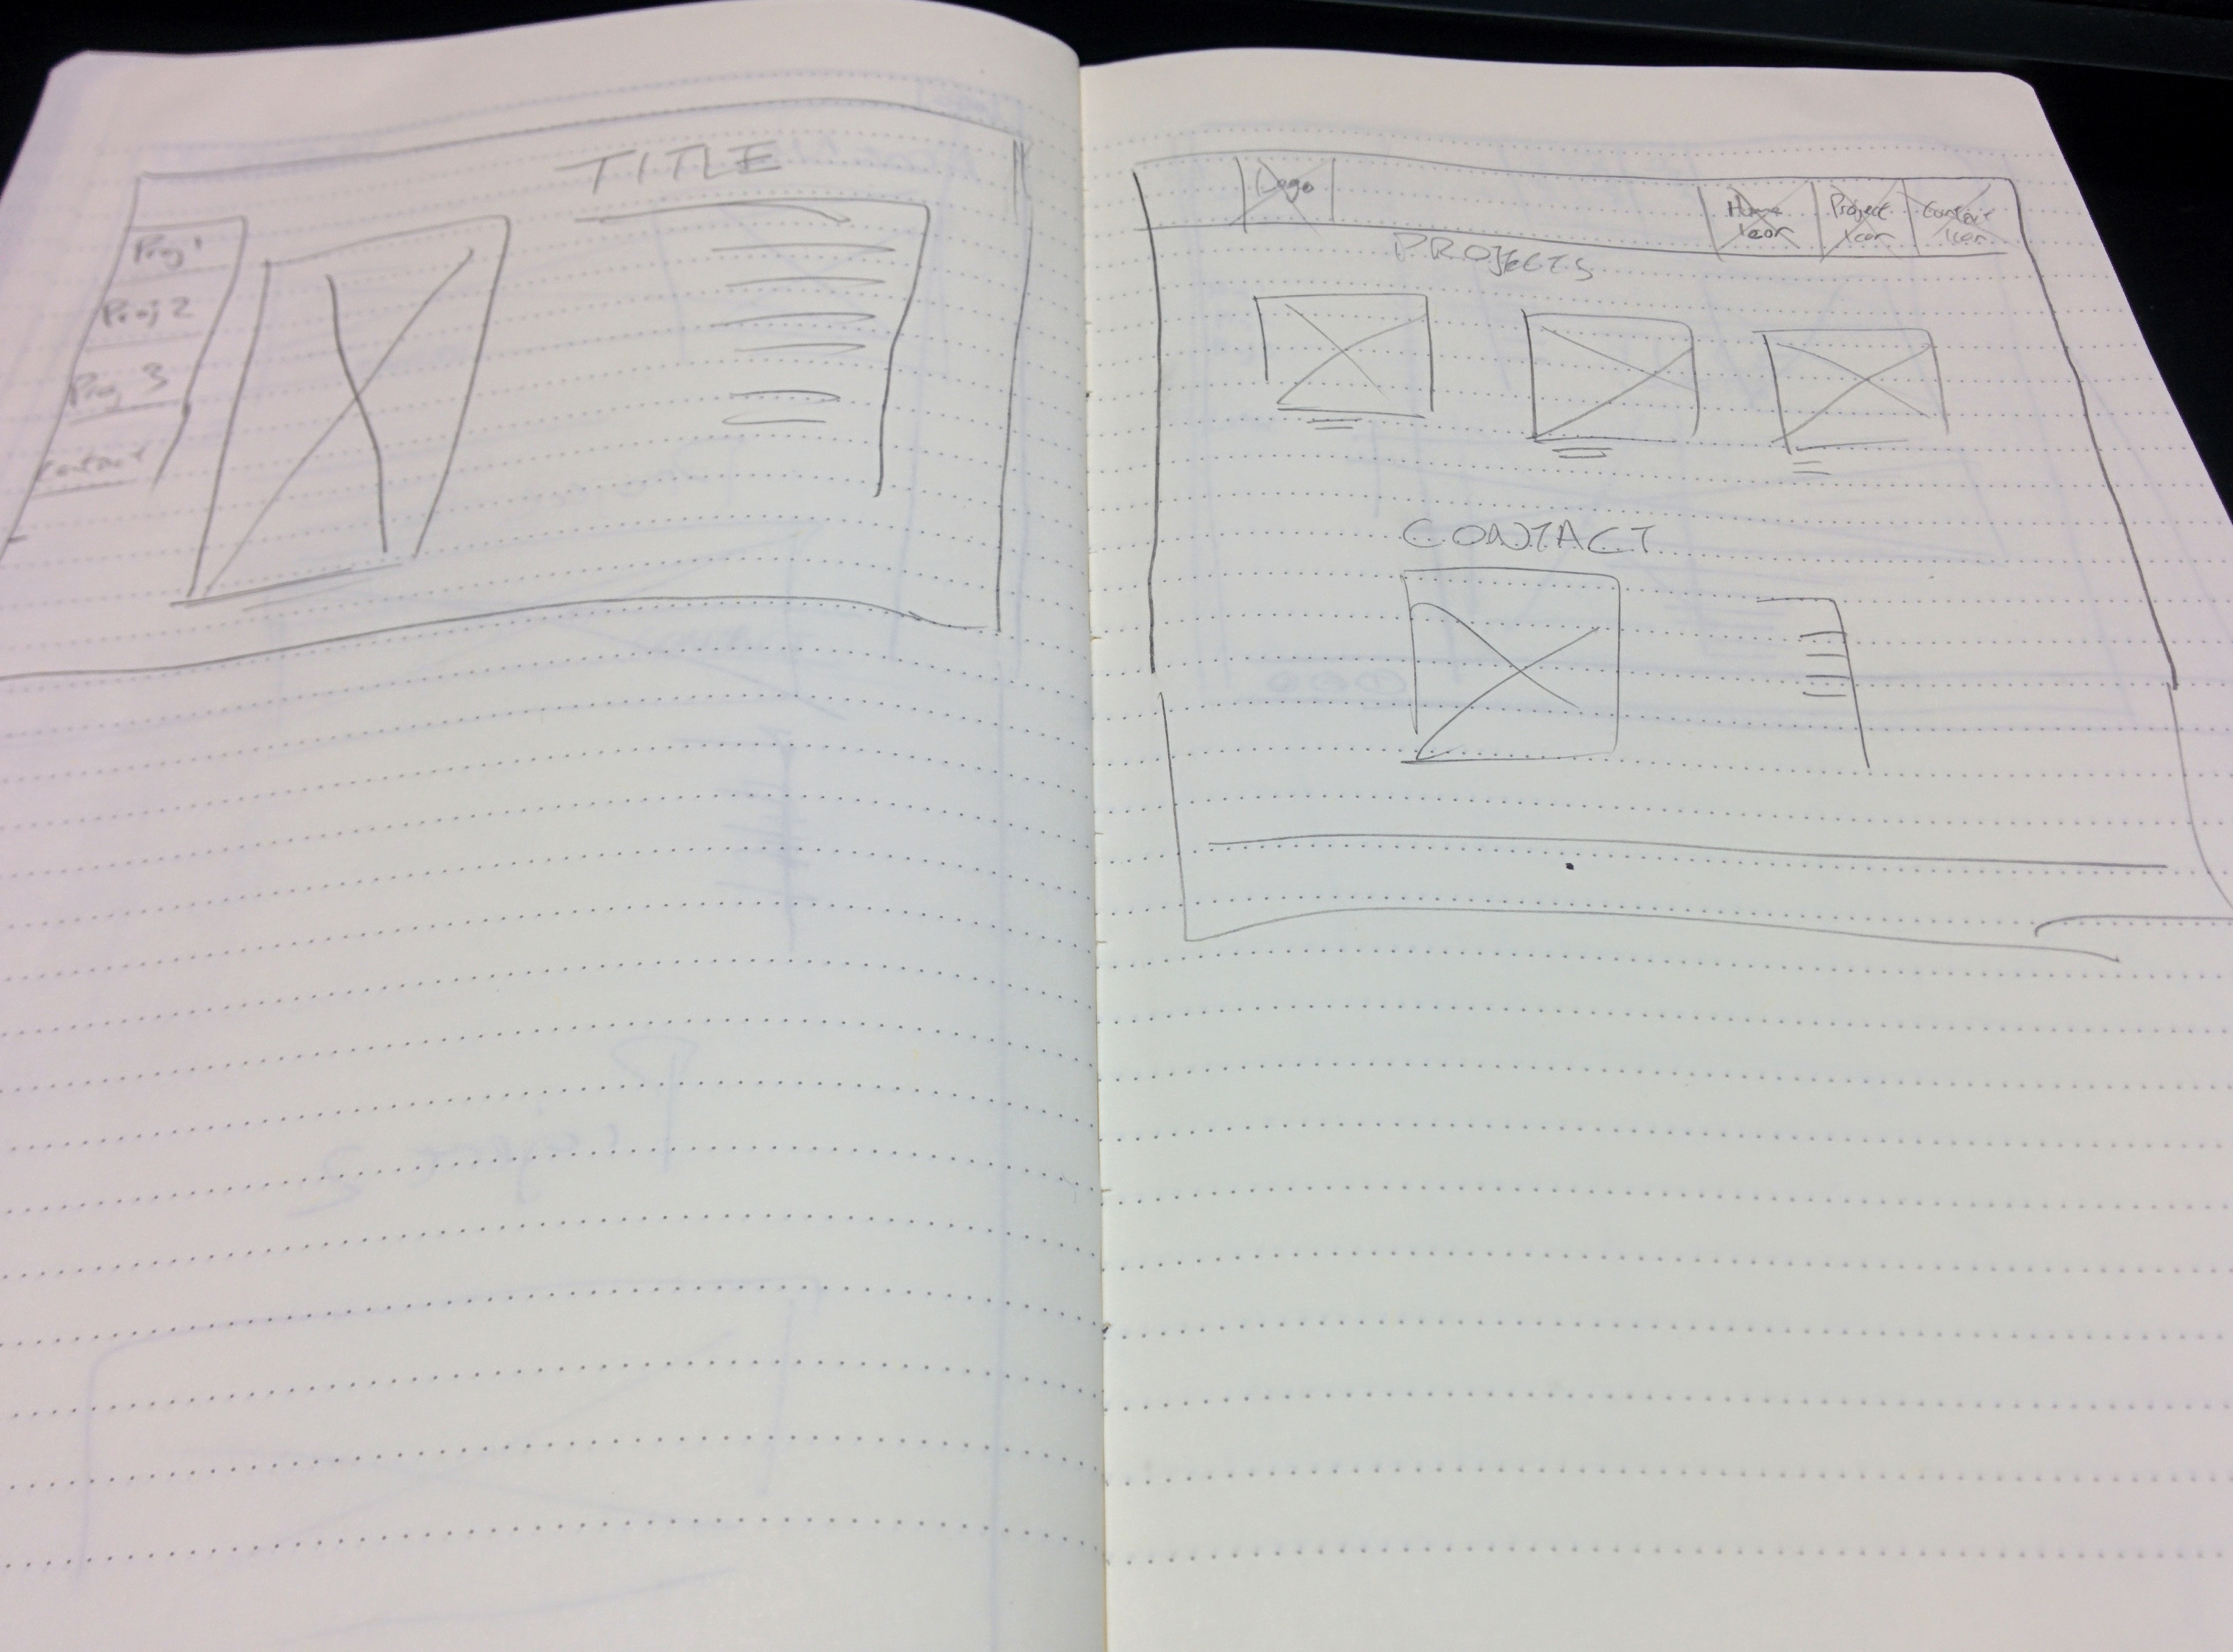 TITLE
Proj 1
Proj 2
Proj 3
Contact
Logo
Home Icon
Project Icon
Contact Icon
PROJECTS
CONTACT